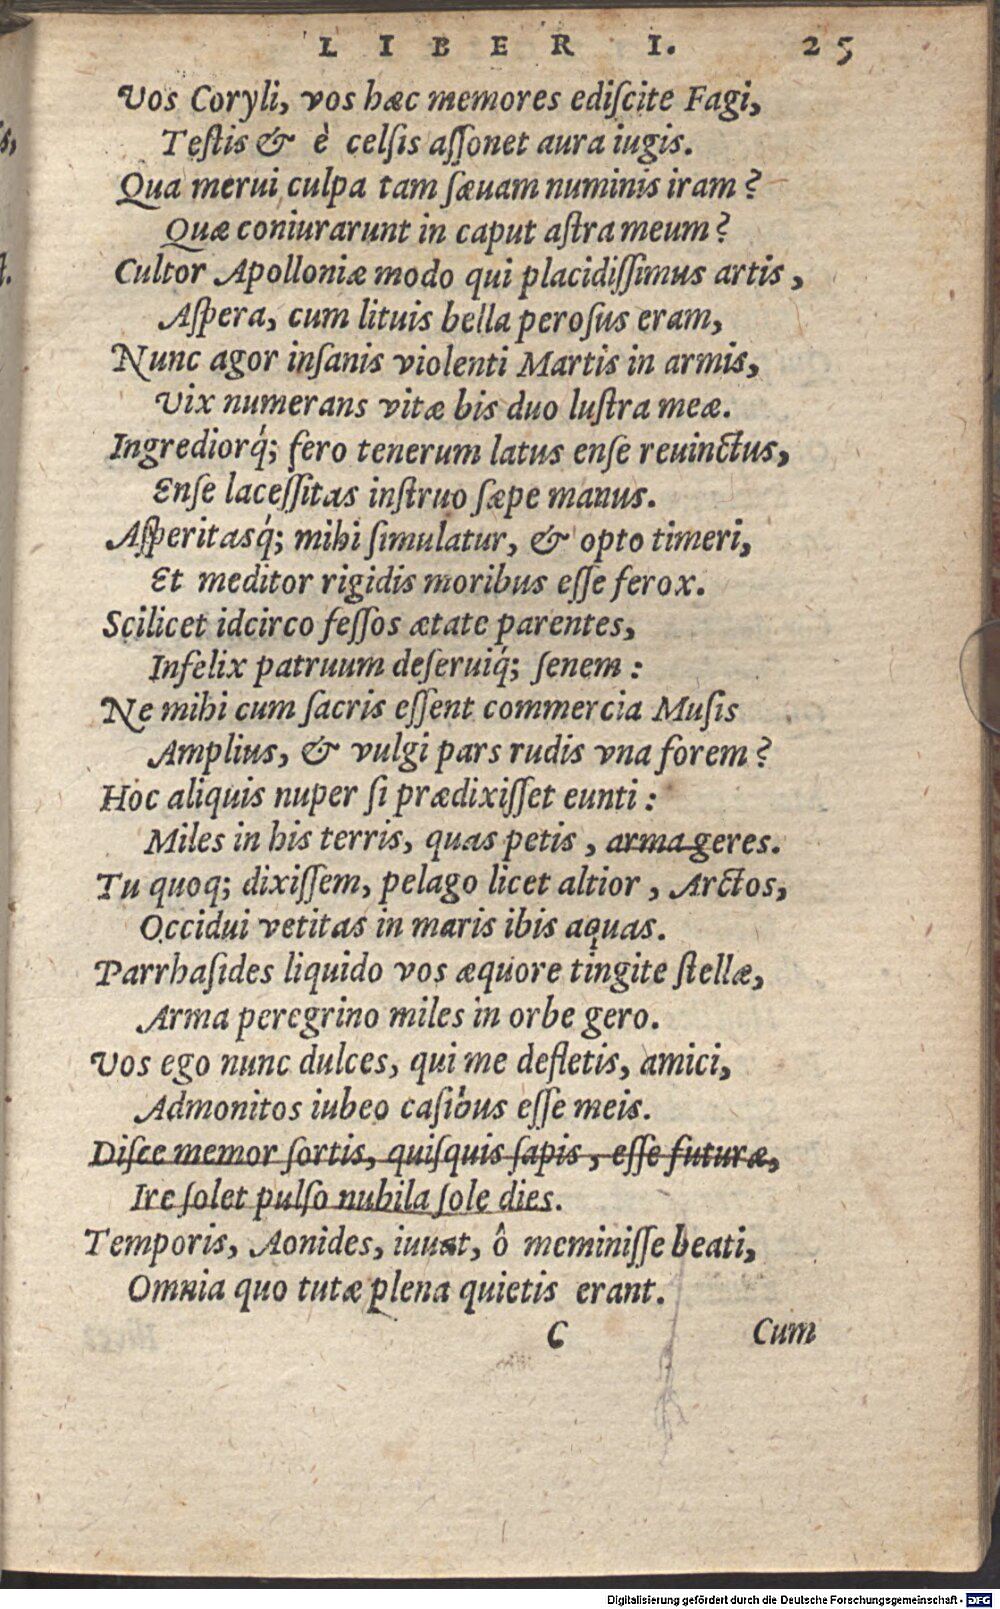 LIBER I. 25
Vos Coryli, vos hæc memores ediſcite Fagi,
Teſtis & è celſis aſſonet aura iugis.
Qua merui culpa tam ſæuam numinis iram?
Quæ coniurarunt in caput aſtra meum?
Cultor Apolloniæ modo qui placidiſſimus artis,
Aſpera, cum lituis bella peroſus eram,
Nunc agor inſanis violenti Martis in armis,
Vix numerans vitæ bis duo luſtra meæ.
Ingrediorq́; fero tenerum latus enſe reuinctus,
Enſe laceſſitas inſtruo ſæpe manus.
Aſperitasq́; mihi ſimulatur, & opto timeri,
Et meditor rigidis moribus eſſe ferox.
Scilicet idcirco feſſos ætate parentes,
Infelix patruum deſeruiq́; ſenem:
Ne mihi cum ſacris eſſent commercia Muſis
Amplius, & vulgi pars rudis vna forem?
Hoc aliquis nuper ſi prædixiſſet eunti:
Miles in his terris, quas petis, arma geres.
Tu quoq; dixiſſem, pelago licet altior, Arctos,
Occidui vetitas in maris ibis aquas.
Parrhaſides liquido vos æquore tingite ſtellæ,
Arma peregrino miles in orbe gero.
Vos ego nunc dulces, qui me defletis, amici,
Admonitos iubeo caſibus eſſe meis.
Diſce memor ſortis, quiſquis ſapis, eſſe futuræ,
Ire ſolet pulſo nubila ſole dies.
Temporis, Aonides, iuuat, ô meminiſſe beati,
Omnia quo tutæ plena quietis erant.
C Cum
Digitalisierung gefördert durch die Deutsche Forschungsgemeinschaft - DFG